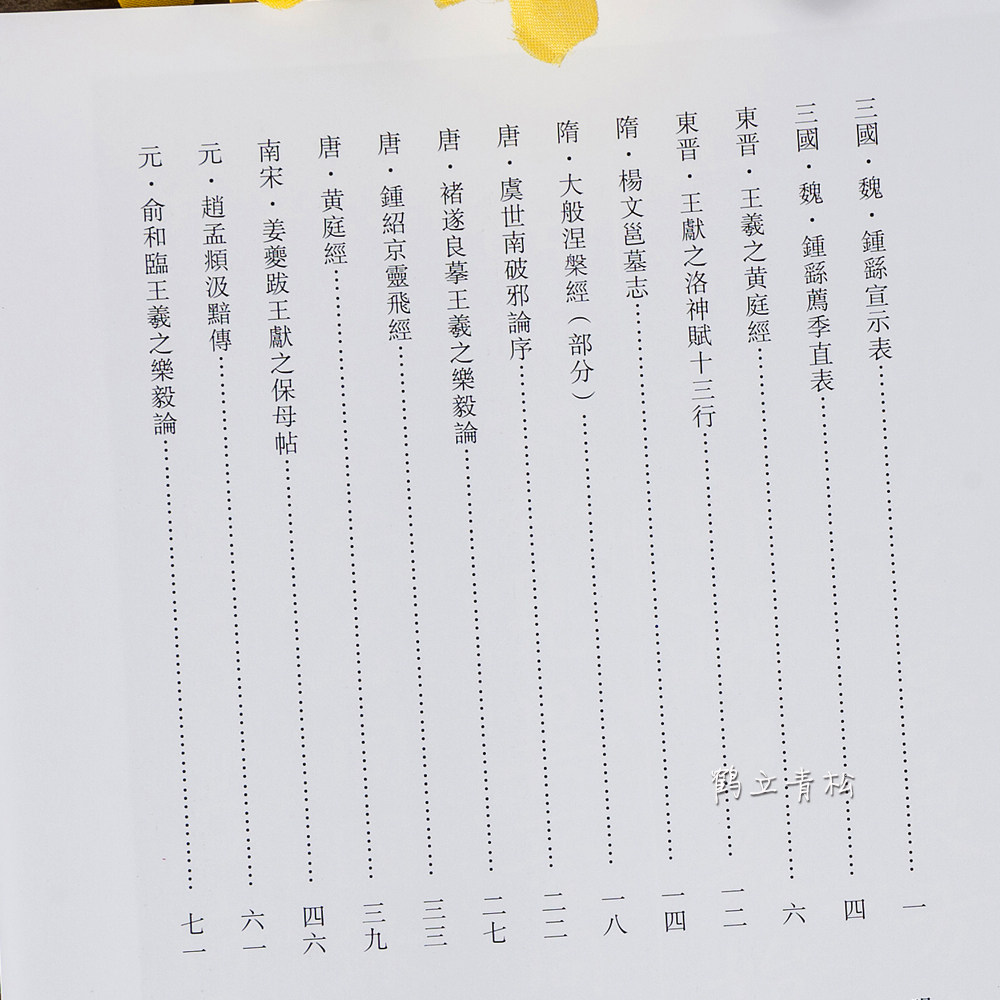 三國・魏・鍾繇宣示表……一
三國・魏・鍾繇薦季直表……四
東晋・王羲之黄庭經……六
東晋・王獻之洛神賦十三行……一二
隋・楊文邕墓志……一四
隋・大般涅槃經（部分）……一八
唐・虞世南破邪論序……二二
唐・褚遂良摹王羲之樂毅論……二七
唐・鍾紹京靈飛經……三三
唐・黄庭經……三九
南宋・姜夔跋王獻之保母帖……四六
元・趙孟頫汲黯傳……六一
元・俞和臨王羲之樂毅論……七一
鹤立青松